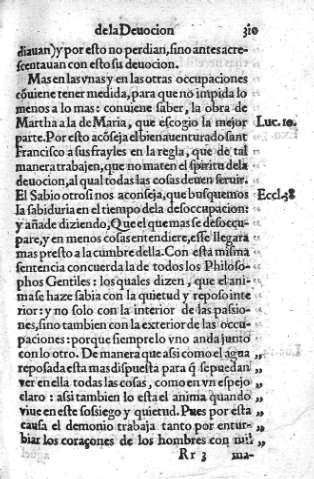 de la Deuocion 310
diauan) y por esto no perdian, sino antes acre-
scentauan con esto su deuocion.
Mas en las vnas y en las otras occupaciones
cōuiene tener medida, para que no impida lo
menos a lo mas: conuiene saber, la obra de
Martha a la de Maria, que escogio la mejor Luc. 10.
parte. Por esto acōseja el bienauenturado sant
Francisco a sus frayles en la regla, que de tal
manera trabajen, que no maten el spiritu de la
deuocion, al qual todas las cosas deuen seruir.
El Sabio otrosi nos aconseja, que busquemos Eccl. 38
la sabiduria en el tiempo de la desoccupacion:
y añade diziendo, Que el que mas se desoccu-
pare, y en menos cosas entendiere, esse llegara
mas presto a la cumbre della. Con esta misma
sentencia concuerda la de todos los Philoso-
phos Gentiles: los quales dizen, que el ani-
ma se haze sabia con la quietud y reposo inte
rior: y no solo con la interior de las passio-
nes, sino tambien con la exterior de las occu-
paciones: porque siempre lo vno anda junto
con lo otro. De manera que assi como el agua „
reposada esta mas dispuesta para q̃ se puedan „
ver en ella todas las cosas, como en vn espejo „
claro: assi tambien lo esta el anima quando „
viue en este sosiego y quietud. Pues por esta „
causa el demonio trabaja tanto por entur- „
biar los coraçones de los hombres con mil „
Rr 3 ma-